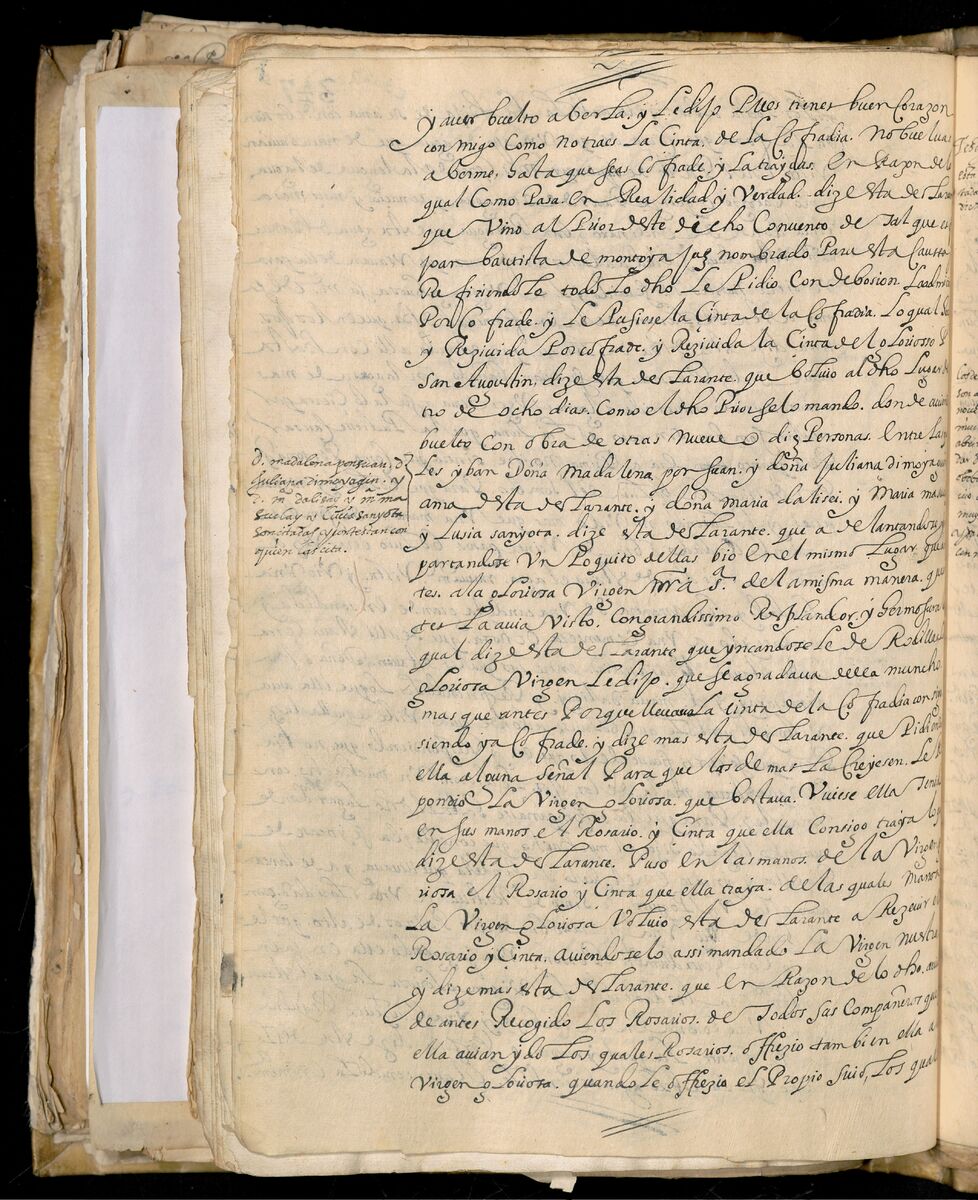 y auer buelto a berla. y le dijo Pues tienes buen Corazon
con migo Como no traes La Cinta. de La Cofradia. No buelvas
a berme, hasta que seas Cofrade. y La traygas. en Razon de lo
qual Como Pasa. en Realidad y Verdad. dize esta declarante
que Vino al Prior deste dicho Convento de Tal que es
juan bautista de montoya juez nombrado Para esta Caussa
Refiriendole todo Lo dho Le Pidio Con debosion. Laadmitiese
Por Cofrade. y Le Pusiese la Cinta de la Cofradia. Lo qual
y Rezivida Por cofrade. y Rezivida la Cinta del glorioso P
san Augustin. dize esta declarante. que boluio al dho Lugar den
tro de ocho dias. Como el dho Prior se lo mando. donde auiendo
buelto Con obra de otras nueve o diez Personas Entre las qua
Les yban Doña Madalena ponsuan. y doña Juliana dimoya
ama desta declarante. y doña maria dalisei. y Maria ma
y Lusia sanyota. dize esta declarante. que adelantandose y a
partandose Un Poquito dellas bio en el mismo Lugar que an
tes. a la gloriosa Virgen nra sra. de la misma manera. que an
tes La auia Visto. Con grandissimo Resplandor. y hermosura
qual dize esta declarante que yncandosele de Rodillas
gloriosa Virgen Le dijo. que se agradaua della muncho
mas que antes Porque lleuaua La Cinta de la Cofradia consigo
siendo ya Cofrade. y dize mas esta declarante. que Pidiendo
ella alguna señal Para que los demas La Creyesen. Le Res
pondio La Virgen gloriosa. que bastaua. Vuiese ella Tenido
en sus manos el Rosario. y Cinta que ella Consigo traya
dize esta declarante. Puso en las manos. de la Virgen glo
riosa el Rosario y Cinta que ella traya. de las quales manos
La Virgen gloriosa Voluio esta declarante a Rezeuir el
Rosario y Cinta. auiendoselo assi mandado La Virgen nuestra
y dize mas esta declarante. que en Razon de lo dho. auia
de antes Recogido Los Rosarios. de Todos sus Compañeros que
ella auian ydo Los quales Rosarios. offrezio tambien ella a
Virgen gloriosa. quando le offrezio el Propio suio, Los quales
d. madalena ponsuan. d.
Juliana dimoya gin. y
d. ma dalisei y ma ma
suelay y Lucia sanyota
son citadas y contestan con
quien las cita.